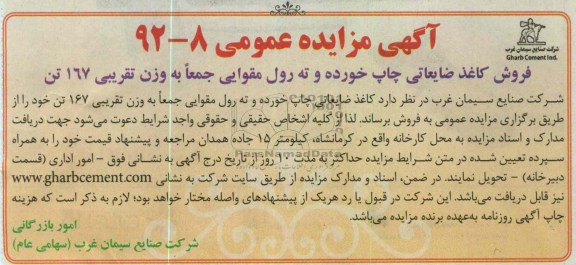 آگهی مزایده عمومی ۸-۹۲
شرکت صنایع سیمان غرب
Gharb Cement Ind.
فروش کاغذ ضایعاتی چاپ خورده و ته رول مقوایی جمعاً به وزن تقریبی ۱۶۷ تن
شرکت صنایع سیمان غرب در نظر دارد کاغذ ضایعاتی چاپ خورده و ته رول مقوایی جمعاً به وزن تقریبی ۱۶۷ تن خود را از
طریق برگزاری مزایده عمومی به فروش برساند. لذا از کلیه اشخاص حقیقی و حقوقی واجد شرایط دعوت می‌شود جهت دریافت
مدارک و اسناد مزایده به محل کارخانه واقع در کرمانشاه، کیلومتر ۱۵ جاده همدان مراجعه و پیشنهاد قیمت خود را به همراه
سپرده تعیین شده در متن شرایط مزایده حداکثر به مدت روز از تاریخ درج آگهی به نشانی فوق - امور اداری (قسمت
دبیرخانه) - تحویل نمایند. در ضمن، اسناد و مدارک مزایده از طریق سایت شرکت به نشانی www.gharbcement.com
نیز قابل دریافت می‌باشد. این شرکت در قبول یا رد هریک از پیشنهادهای واصله مختار خواهد بود؛ لازم به ذکر است که هزینه
چاپ آگهی روزنامه به‌عهده برنده مزایده می‌باشد.
امور بازرگانی
شرکت صنایع سیمان غرب (سهامی عام)